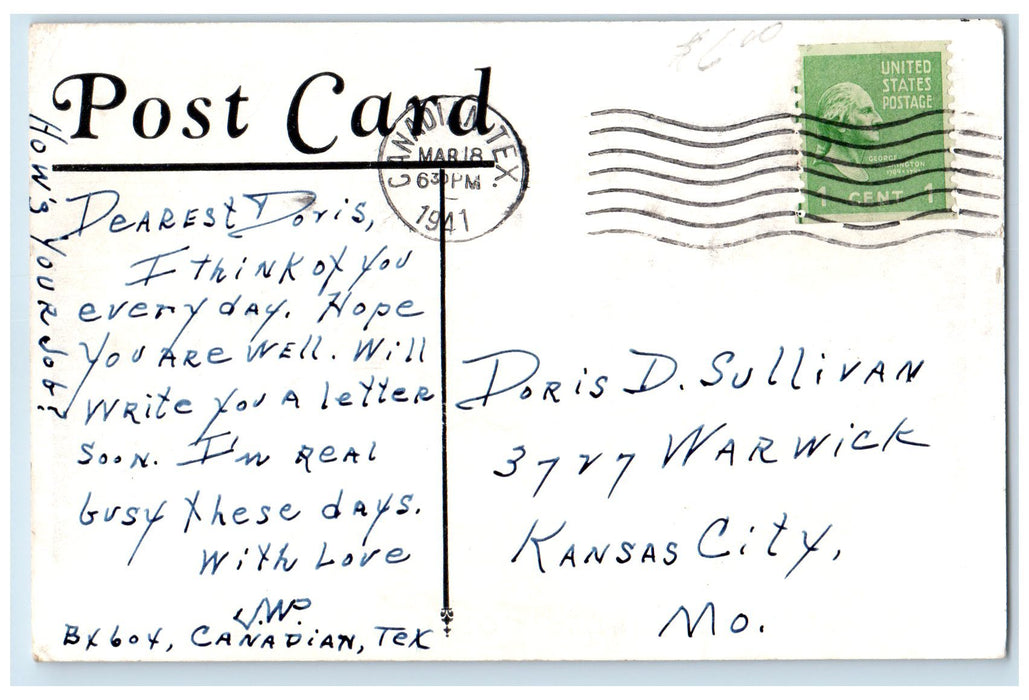 Post Card
CANADIAN, TEX.
MAR 18
630 PM
1941
$6.00
UNITED
STATES
POSTAGE
GEORGE
WASHINGTON
1789-1797
1 CENT 1
Dearest Doris,
I think of you
every day. Hope
you are well. Will
write you a letter
soon. I'm real
busy these days.
With Love
J.W.
Bx 604, Canadian, Tex
How's your job?
Doris D. Sullivan
3727 Warwick
Kansas City,
Mo.